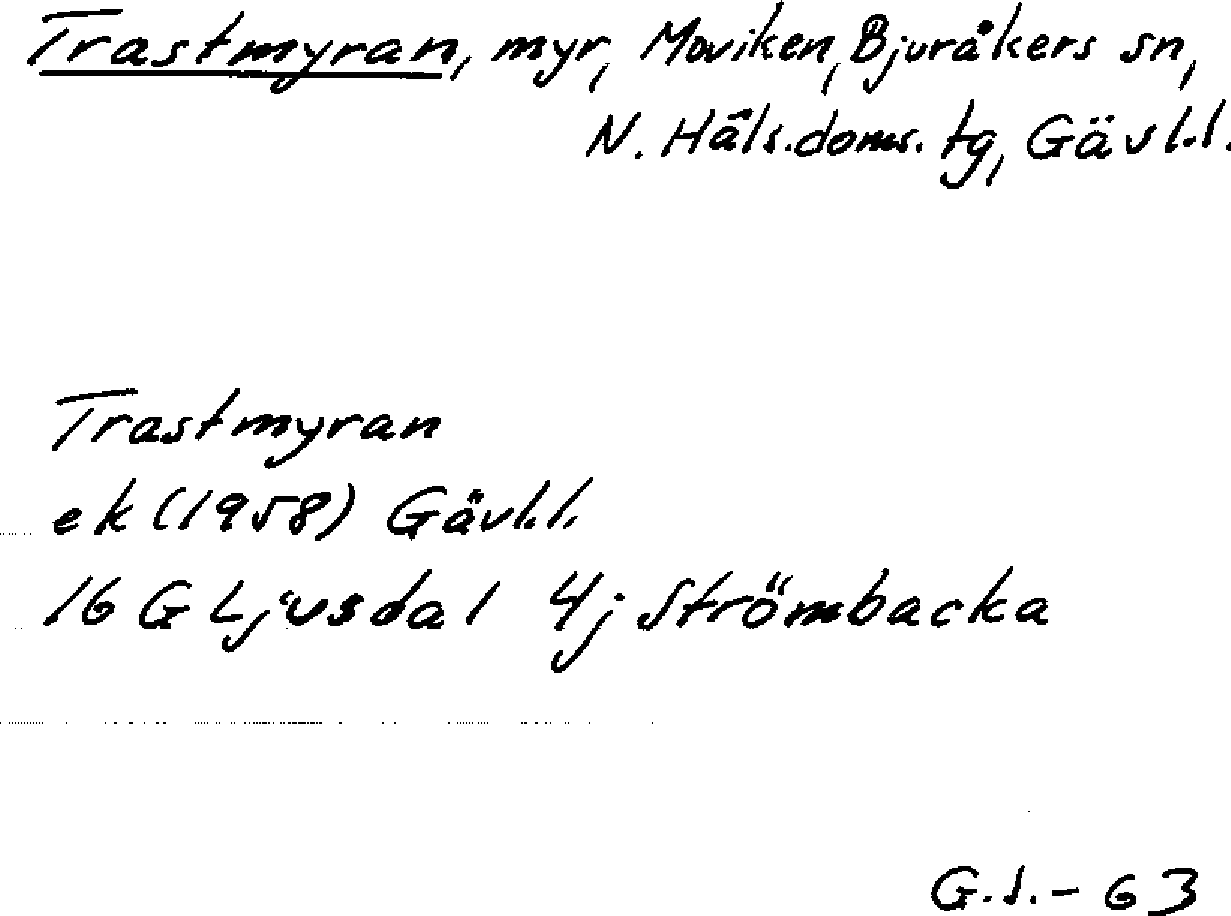 Trastmyran, myr, Moviken, Bjuråkers sn,
N. Häls. doms. tg, Gävl.l.
Trastmyran
ek (1958) Gävl.l.
16 G Ljusdal 4j Strömbacka
G.S. - 63